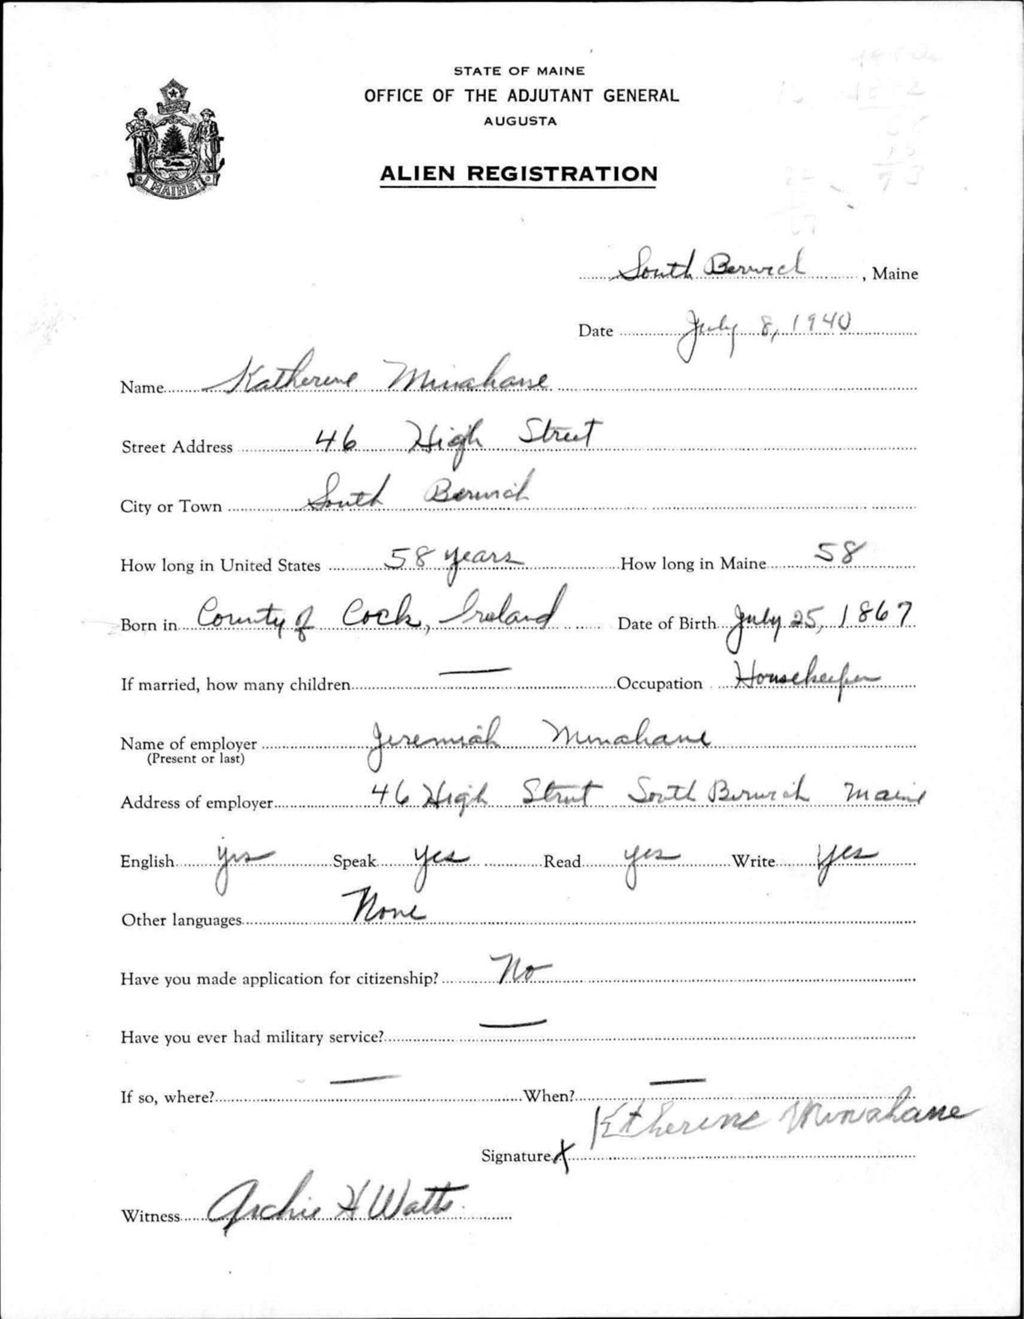 STATE OF MAINE
OFFICE OF THE ADJUTANT GENERAL
AUGUSTA
ALIEN REGISTRATION
MAINE
South Berwick, Maine
Date July 8, 1940
Name Katherine Minahane
Street Address 46 High Street
City or Town South Berwick
How long in United States 58 years How long in Maine 58
Born in County of Cock, Ireland Date of Birth July 25, 1867
If married, how many children — Occupation Housekeeper
Name of employer Jeremiah Minahane
(Present or last)
Address of employer 46 High Street South Berwick Maine
English yes Speak yes Read yes Write yes
Other languages None
Have you made application for citizenship? No
Have you ever had military service? —
If so, where? — When? —
Signature X Katherine Minahane
Witness Archie H Watts.